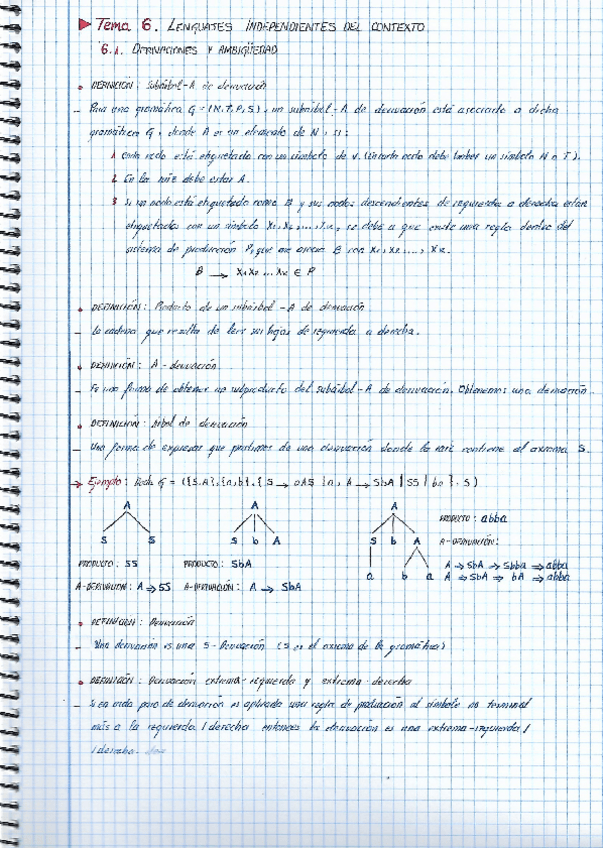 Tema 6. LENGUAJES INDEPENDIENTES DEL CONTEXTO.
6.1. DERIVACIONES Y AMBIGÜEDAD
• DEFINICIÓN: Subárbol-A de derivación
- Para una gramática G = (N,T,P,S), un subárbol-A de derivación está asociado a dicha
gramática G, donde A es un elemento de N, si:
1. Cada nodo está etiquetado con un símbolo de V. (En cada nodo debe haber un símbolo N o T).
2. En la raíz debe estar A.
3. Si un nodo está etiquetado como B y sus nodos descendientes de izquierda a derecha están
etiquetados con un símbolo X₁,X₂,...,Xₖ, se debe a que existe una regla dentro del
sistema de producción P, que asocia B con X₁,X₂,..., Xₖ.
B → X₁X₂...Xₖ ∈ P
• DEFINICIÓN: Producto de un subárbol-A de derivación.
- La cadena que resulta de leer sus hojas de izquierda a derecha.
• DEFINICIÓN: A-derivación
- Es una forma de obtener un subproducto del subárbol-A de derivación. Obtenemos una derivación.
• DEFINICIÓN: Árbol de derivación
- Una forma de expresar que partimos de una derivación donde la raíz contiene el axioma S.
→ Ejemplo: Dada G = ({S,A},{a,b},{S → aAS | a, A → SbA | SS | ba}, S)
A A A PRODUCTO: abba
S S S b A S b A A-DERIVACIÓN:
PRODUCTO: SS PRODUCTO: SbA a b a A ⇒ SbA ⇒ Sbba ⇒ abba
A-DERIVACIÓN: A ⇒ SS A-DERIVACIÓN: A ⇒ SbA A ⇒ SbA ⇒ bA ⇒ abba
• DEFINICIÓN: Derivación
- Una derivación es una S-Derivación (S es el axioma de la gramática)
• DEFINICIÓN: Derivación extrema-izquierda y extrema-derecha
- Si en cada paso de derivación es aplicada una regla de producción al símbolo no terminal
más a la izquierda / derecha entonces la derivación es una extrema-izquierda /
/ derecha.